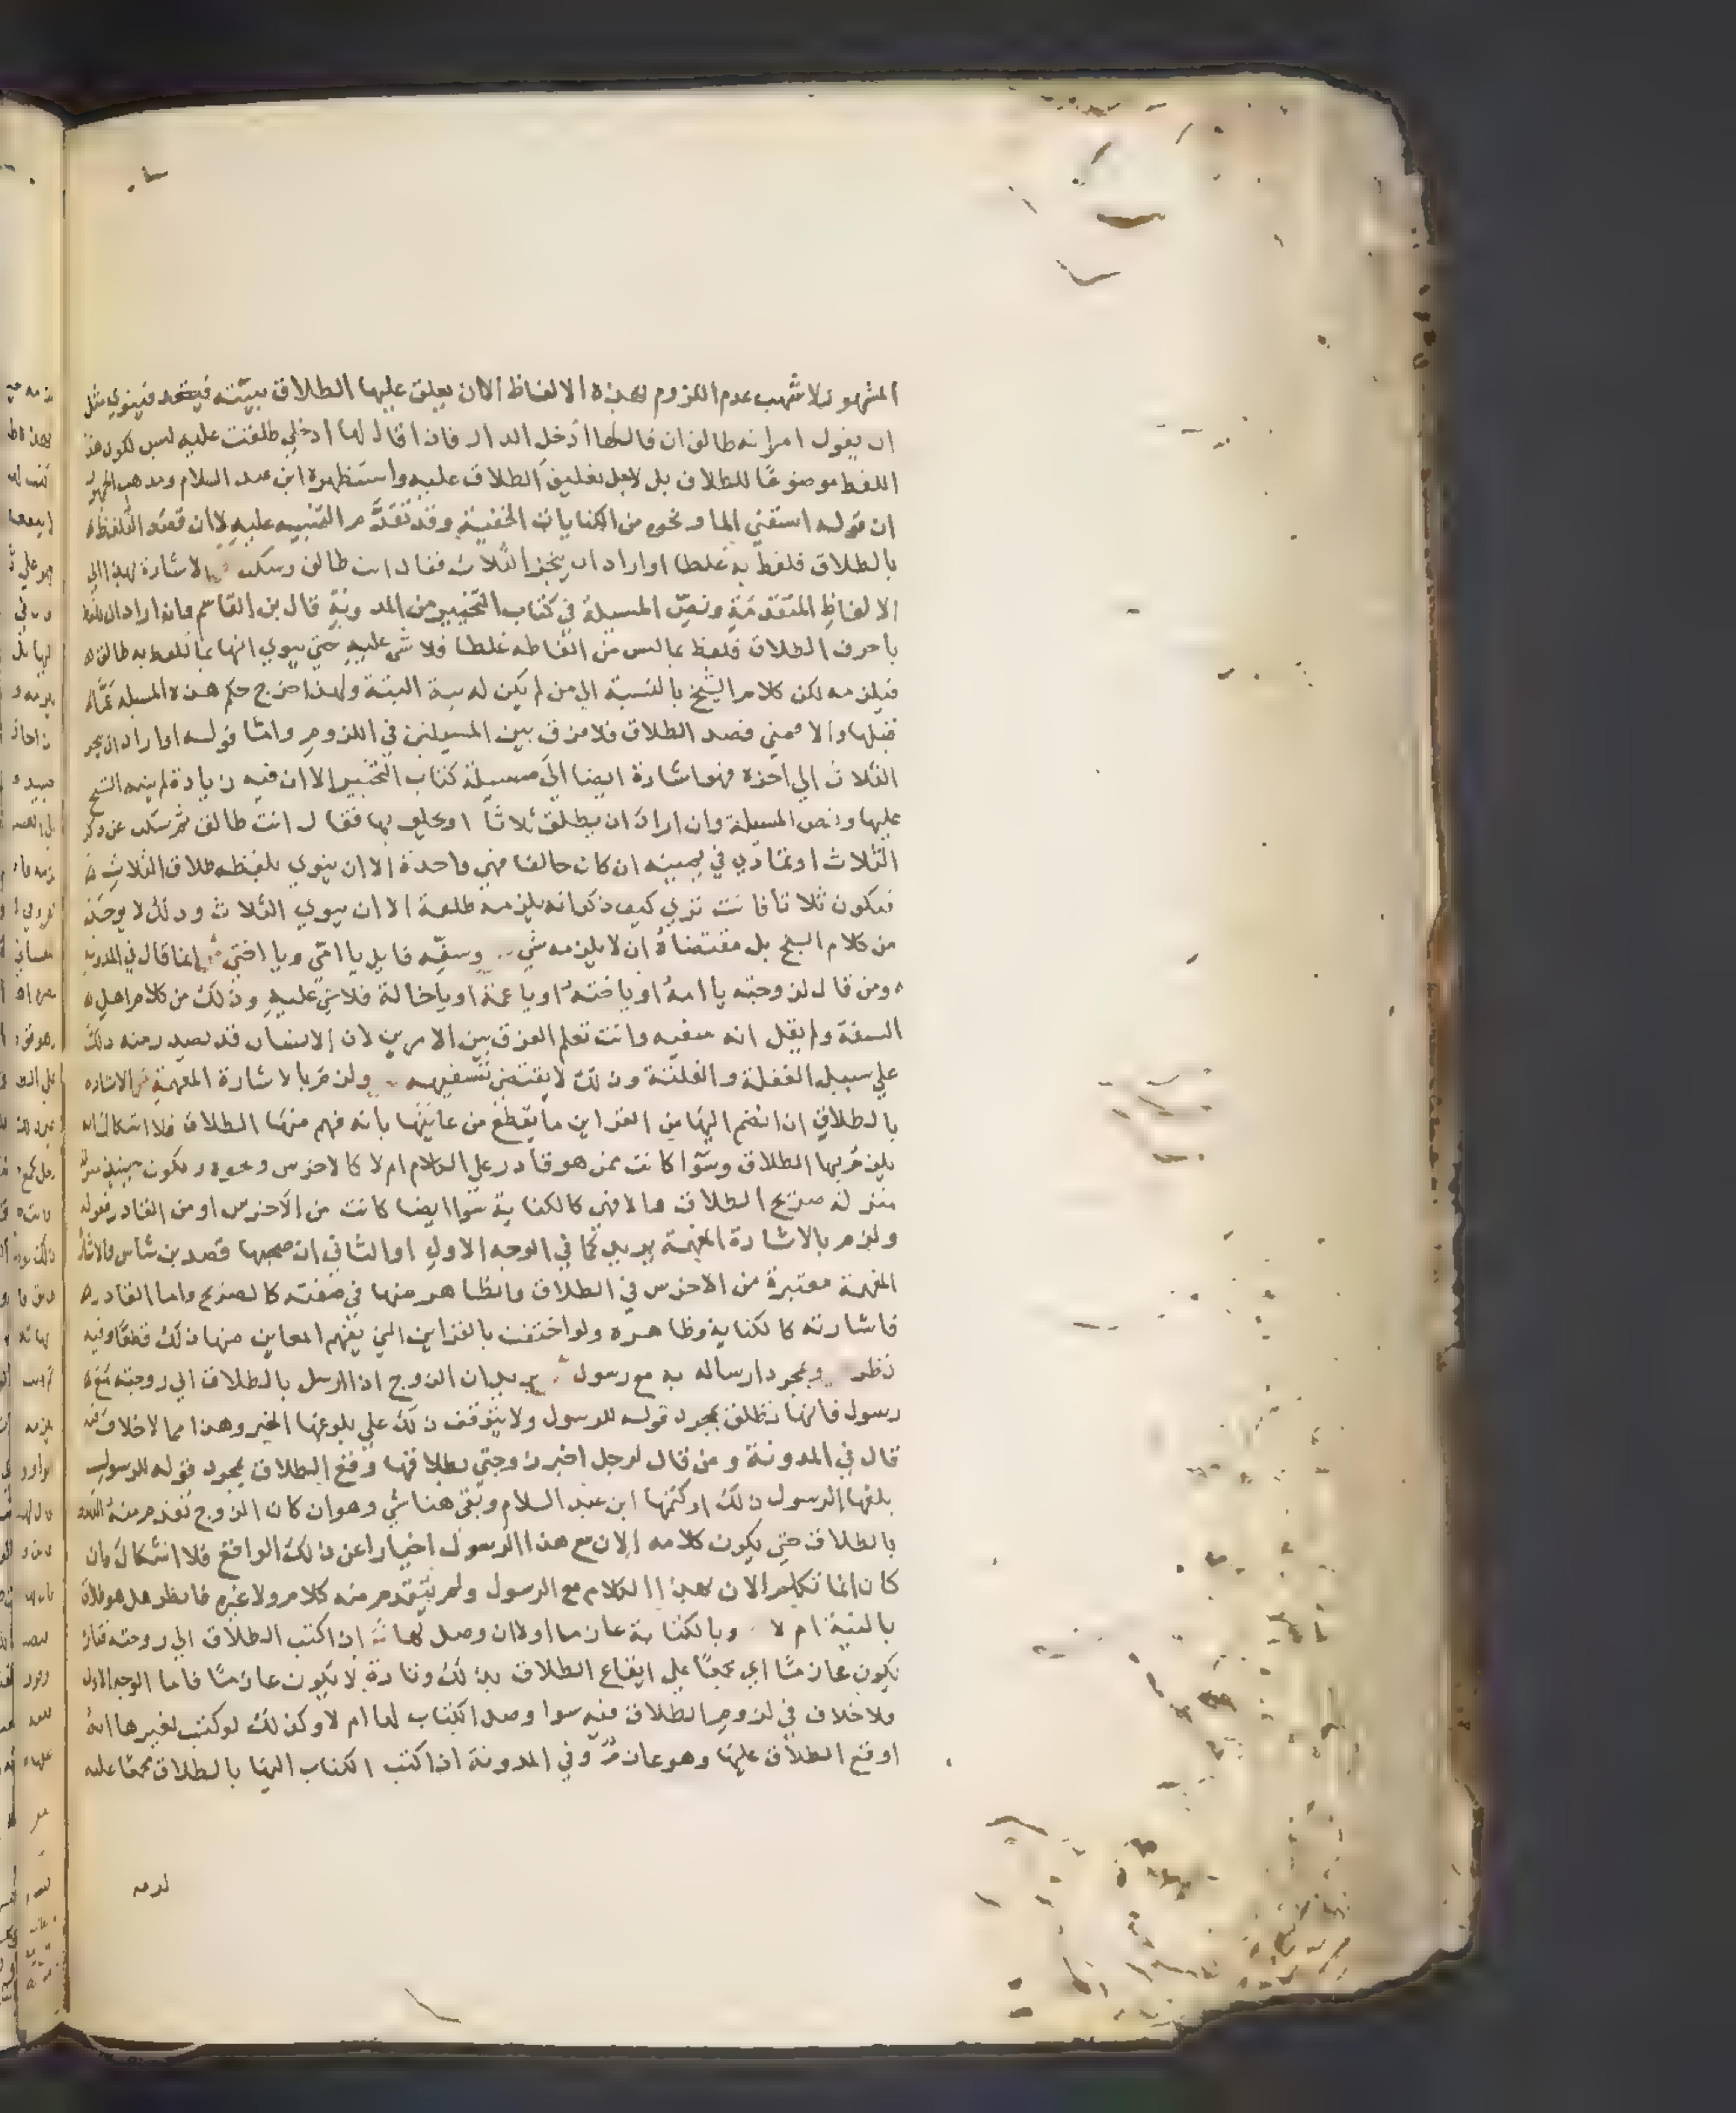 المشهور ولاشهب عدم اللزوم بهذه الالفاظ الا ان يعلق عليها الطلاق بنيته فينوي مثل
ان يقول امراته طالق ان قال لها ادخلي الدار فاذا قال لها ادخلي طلقت عليه ليس لكون هذا
اللفظ موضوعًا للطلاق بل لاجل تعليق الطلاق عليه واستظهره ابن عبد السلام ومذهب الجمهور
ان قوله اسقني الما ونحوه من الكنايات الخفية وقد تقدم التنبيه عليه لا ان قصد التلفظ
بالطلاق فلفظ بهذا غلطا او اراد ان ينجز الثلاث فقال انت طالق وسكت الاشارة بهذا الي
الالفاظ المتقدمة ونص المسيلة في كتاب التخيير من المدونة قال بن القاسم وان اراد ان يلفظ
باحرف الطلاق فلفظ بما ليس من الفاظه غلطا فلا شي عليه حتي ينوي انها بما تلفظ به طالق
فيلزمه لكن كلام الشيخ بالنسبة الي من لم يكن له نية البتة ولهذا اخرج حكم هذه المسيلة عما
قبلها والا فمتي قصد الطلاق فلا فرق بين المسيلتين في اللزوم واما قوله او اراد ان ينجز
الثلاث الي اخره فهو اشارة ايضا الي مسيلة كتاب التخيير الا ان فيه زيادة لم ينبه الشيخ
عليها ونص المسيلة وان اراد ان يطلق ثلاثا او يحلف بها فقال انت طالق ثم سكت عن ذكر
الثلاث او تمادي في يمينه ان كان حالفا فهي واحدة الا ان ينوي بلفظه طلاق الثلاث
فتكون ثلاثا فانت تري كيف ذكر انه يلزمه طلقة الا ان ينوي الثلاث وذلك لا يوخذ
من كلام الشيخ بل مقتضاه ان لا يلزمه شي وسفه قايل يا امي ويا اختي انما قال في المدونة
ومن قال لزوجته يا امه او يا اخته او يا عمة او يا خالة فلا شي عليه وذلك من كلام اهل
السفه ولم يقل انه سفيه وانت تعلم الفرق بين الامرين لان الانسان قد يصدر منه ذلك
علي سبيل الغفلة والفلتة وذلك لا يقتضي تسفيهه ولزم بالاشارة المفهمة الاشارة
بالطلاق ان انضم اليها من القراين ما يقطع من عاينها بانه فهم منها الطلاق فلا اشكال انه
يلزم بها الطلاق وسوا كانت ممن هو قادر علي الكلام ام لا كالاخرس ونحوه وتكون حينيذ
منزلة صريح الطلاق والا فهي كالكناية سوا ايضا كانت من الاخرس او من القادر فقوله
ولزم بالاشارة المفهمة يريد كما في الوجه الاول او الثاني ان صحبها قصد بن شاس والاشارة
المفهمة معتبرة من الاخرس في الطلاق والظاهر منها في صفته كالصريح واما القادر
فاشارته كالكناية وظاهره ولو اختفت بالقراين التي يفهم المعاين منها ذلك قطعا وفيه
نظر وبمجرد ارساله به مع رسول يريد ان الزوج اذا ارسل بالطلاق الي زوجته مع
رسول فانها تطلق بمجرد قوله للرسول ولا يتوقف ذلك علي بلوغها الخبر وهذا مما لا خلاف فيه
قال في المدونة ومن قال لرجل اخبر زوجتي بطلاقها وقع الطلاق بمجرد قوله للرسول
بلغها الرسول ذلك او كتمها ابن عبد السلام وبقي هنا شي وهو ان كان الزوج تقدم منه
بالطلاق حتي يكون كلامه الان مع هذا الرسول اخبارا عن ذلك الواقع فلا اشكال وان
كان انما تكلم الان بهذا الكلام مع الرسول ولم يتقدم منه كلام ولا غيره فانظر هل هو طلاق
بالنية ام لا وبالكتابة عازما اولا ان وصل لها اذا كتب الطلاق الي زوجته فتارة
يكون عازمًا اي مجمعًا علي ايقاع الطلاق بذلك وتارة لا يكون عازمًا فاما الوجه الاول
فلا خلاف في لزوم الطلاق فيه سوا وصل الكتاب لها ام لا وكذلك لو كتب لغيرها انه
اوقع الطلاق عليها وهو عازم وفي المدونة اذا كتب الكتاب اليها بالطلاق مجمعا عليه
لزمه